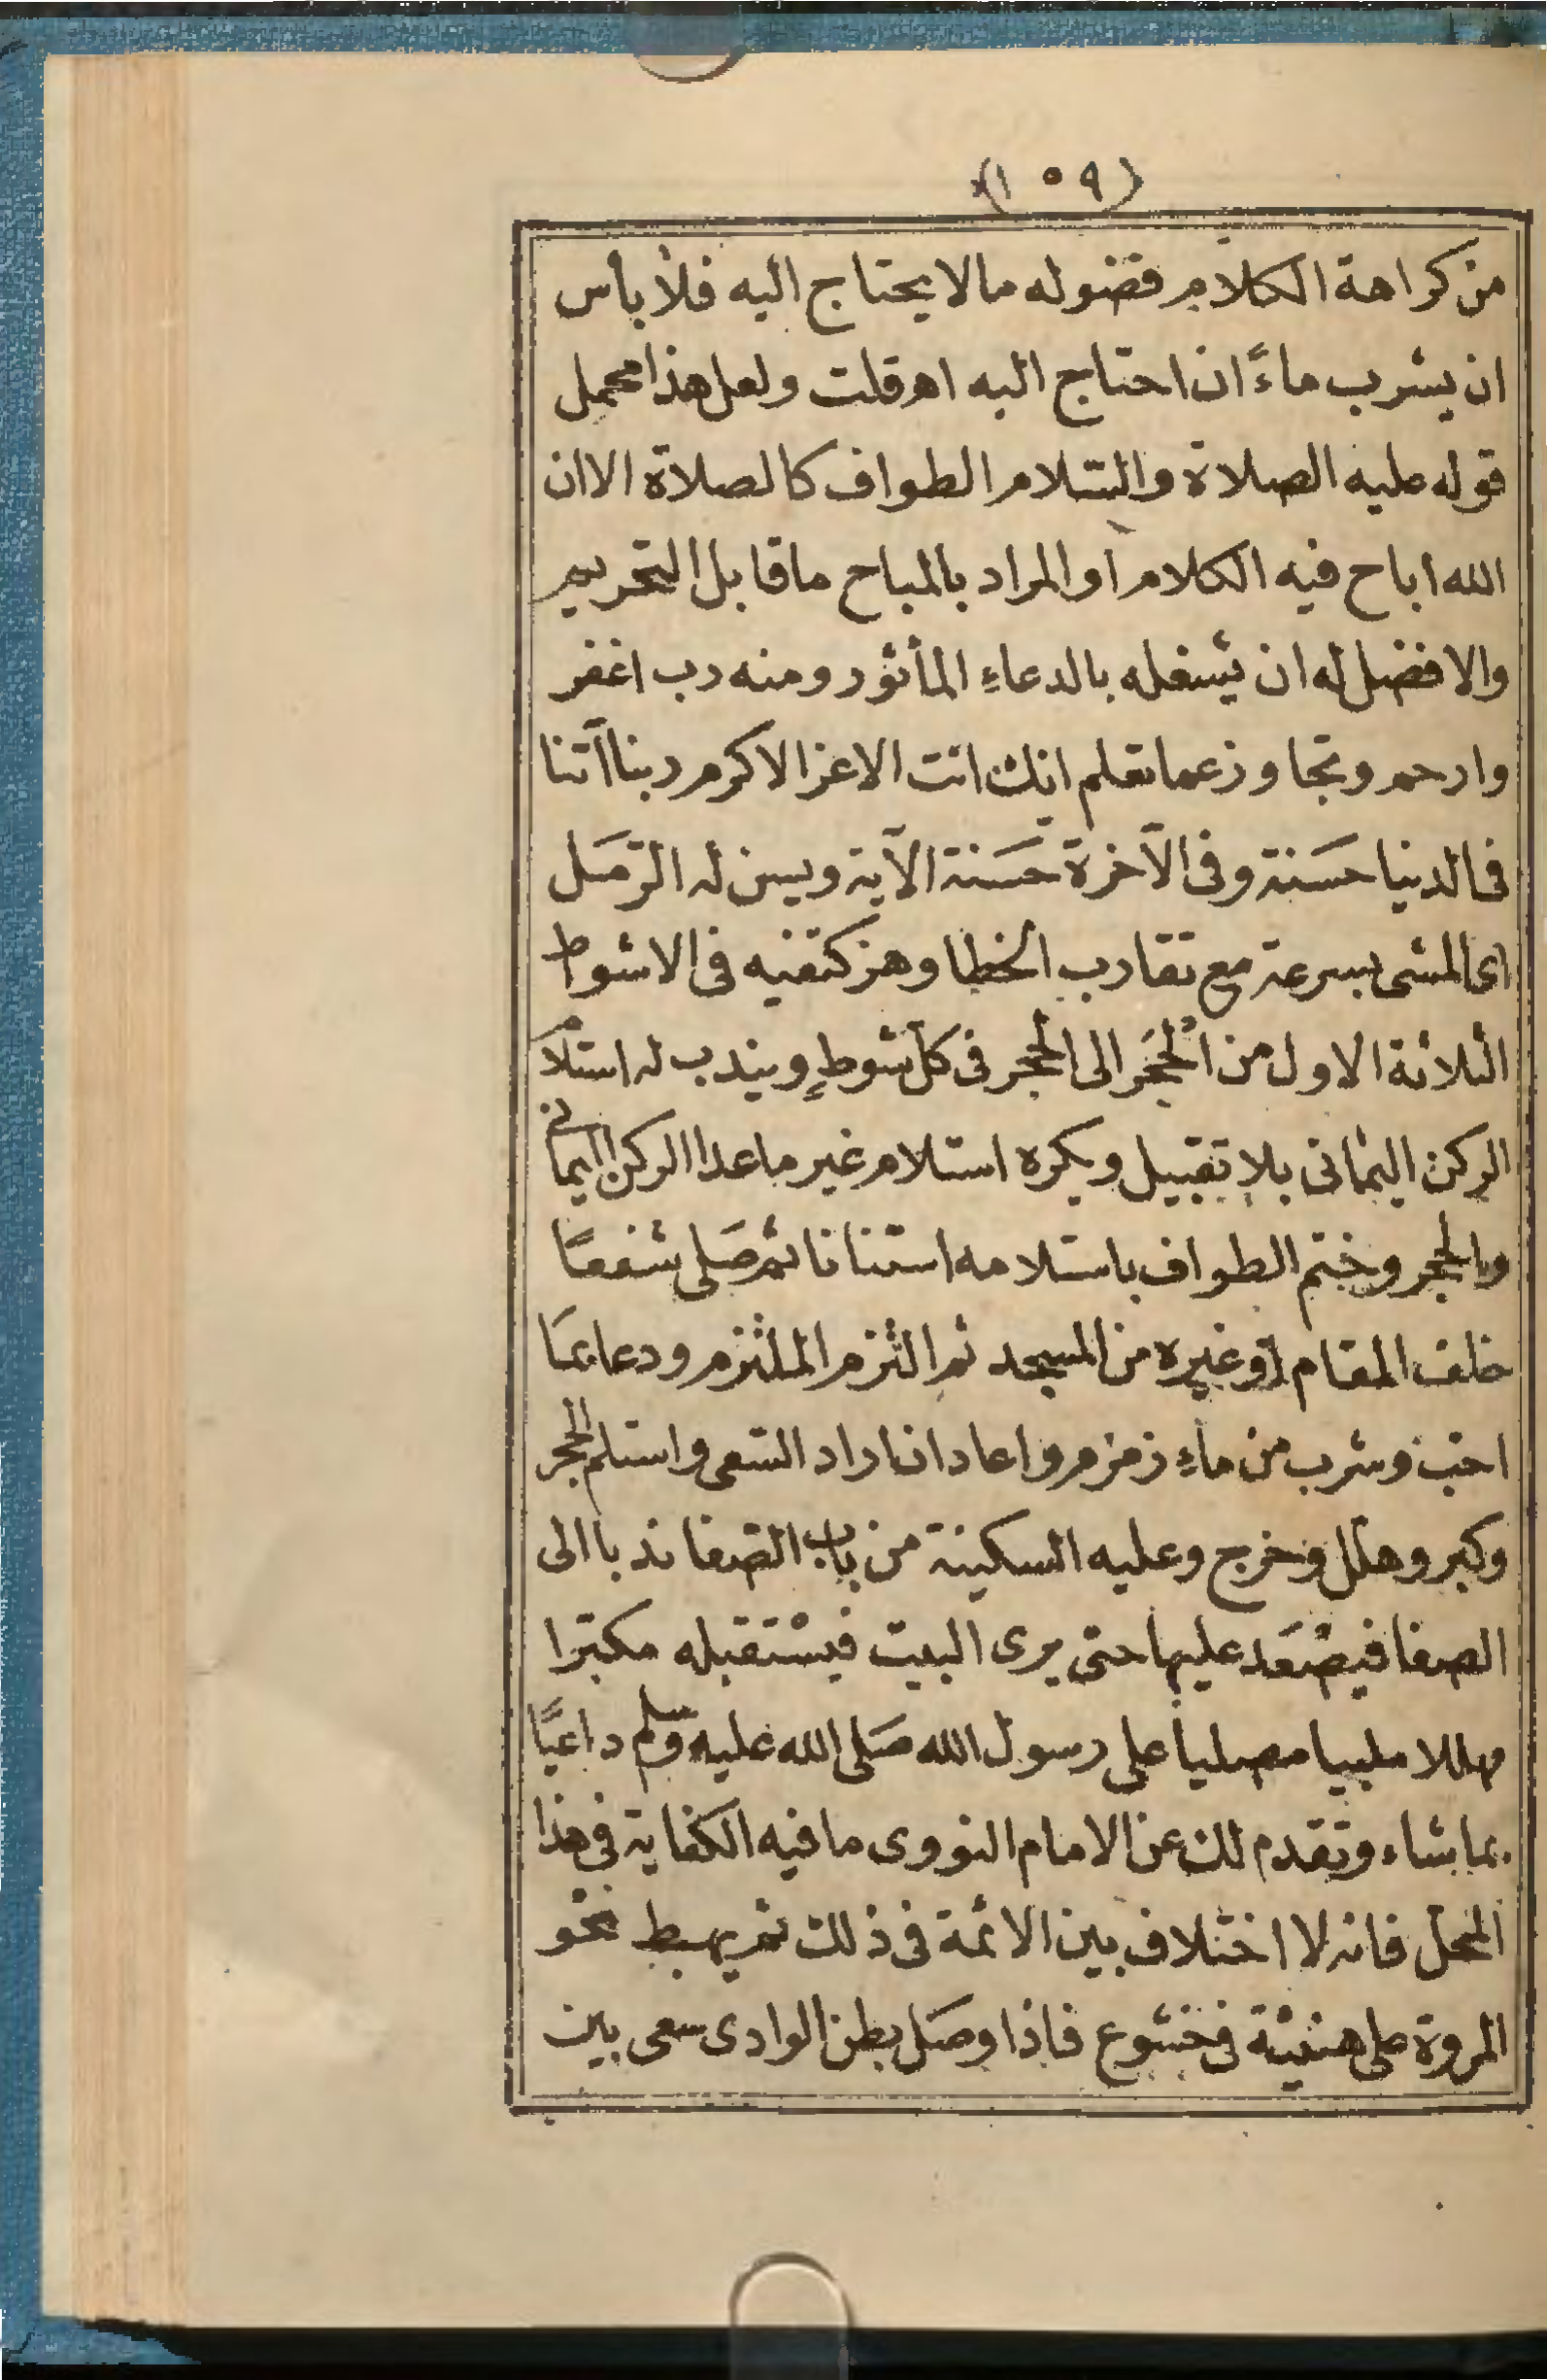 (١٥٩)
من كراهة الكلام فضوله مالا يحتاج اليه فلا بأس
ان يشرب ماءً ان احتاج اليه اهـ قلت ولعل هذا محمل
قوله عليه الصلاة والسّلام الطواف كالصلاة الا ان
الله اباح فيه الكلام او المراد بالمباح ما قابل التحريم
والافضل له ان يشغله بالدعاءِ المأثور ومنه رب اغفر
وارحم وتجاوز عما تعلم انك انت الاعز الاكرم ربنا آتنا
فى الدنيا حسَنة وفى الآخرة حسَنة الآية ويسن له الرّمَل
اى المشى بسرعة مع تقارب الخطا وهز كتفيه فى الاشواط
الثلاثة الاول من الْحَجَر الى الحجر فى كل شوطٍ ويندب له استلام
الركن اليمانى بلا تقبيل ويكره استلام غير ما عدا الركن اليمانى
والحجر وختم الطواف باستلامه استنانا ثم صَلى شفعًا
خلف المقام او غيره من المسجد ثم التزم الملتزم ودعا بمَا
احبّ وشرب من ماءِ زمزم واعاد ان اراد السّعى واستلم الحجر
وكبر وهلّل وخرج وعليه السكينة من باب الصّفا ندبا الى
الصفا فيصْعَد عليها حتى يرى البيت فيسْتَقبله مكبّرا
مهللا ملبيا مصليا على رسول الله صَلى الله عليه وسلم داعيًا
بما شاء وتقدم لك عن الامام النووى ما فيه الكفاية فى هذا
المحل فانه لا اختلاف بين الائمة فى ذلك ثم يهبط نحو
المروة على هنيئة فى خشوع فاذا وصَل بطن الوادى سعى بين